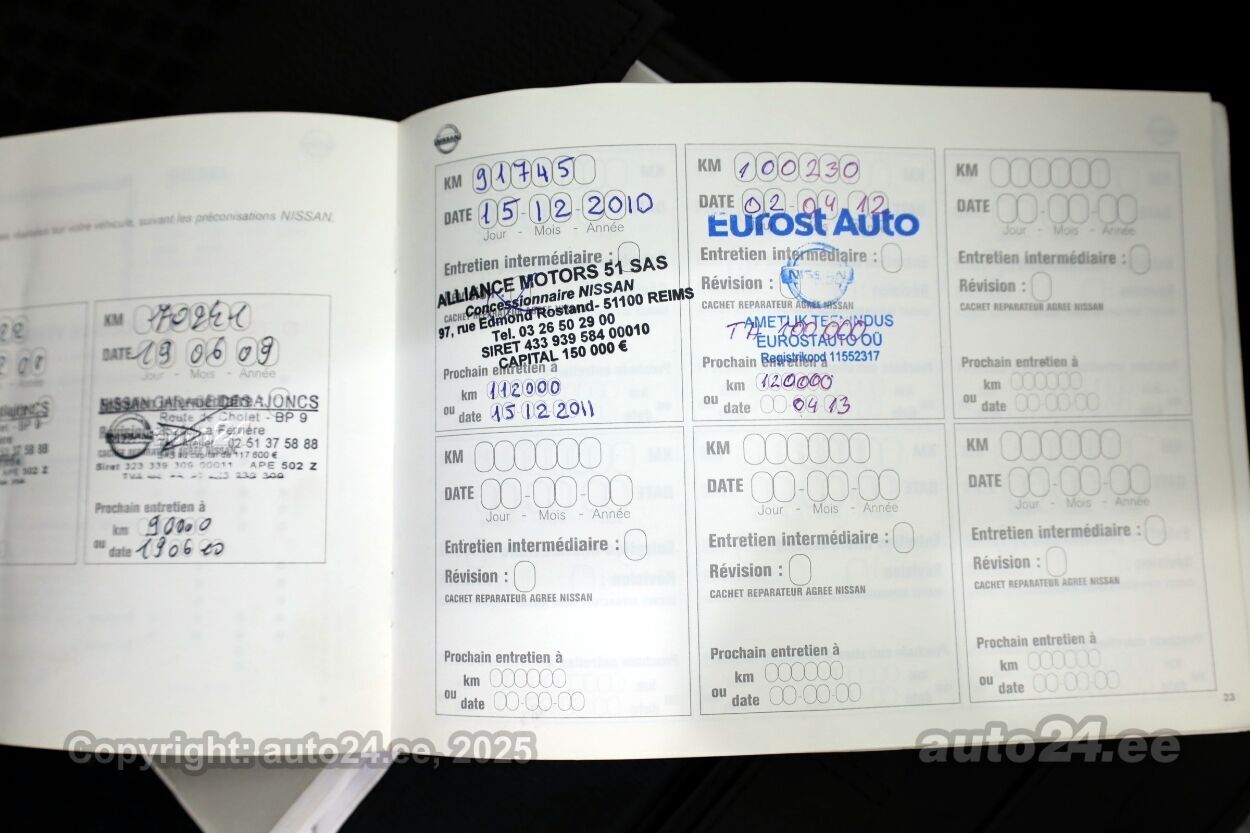 es réalisées sur votre véhicule, suivant les préconisations NISSAN.
KM
DATE 19 06 09
Jour - Mois - Année
NISSAN GARAGE DES AJONCS
Route de Cholet - BP 9
La Ferrière
02 51 37 58 88
APE 502 Z
Prochain entretien à
km 90000
ou
date 19 06 10
NISSAN
KM 91745
DATE 15-12-2010
Jour - Mois - Année
Entretien intermédiaire :
ALLIANCE MOTORS 51 SAS
Concessionnaire NISSAN
97, rue Edmond Rostand- 51100 REIMS
Tel. 03 26 50 29 00
SIRET 433 939 584 00010
CAPITAL 150 000 €
Prochain entretien à
km 112000
ou
date 15 12 2011
KM 100230
DATE 02-04 12
Eurost Auto
Entretien intermédiaire :
Révision :
NISSAN
CACHET REPARATEUR AGREE NISSAN
AMETLIK TEENINDUS
TH 100.000
EUROSTAUTO OÜ
Registrikood 11552317
Prochain entretien à
km 120000
ou
date 04 13
KM
DATE
Jour - Mois - Année
Entretien intermédiaire :
Révision :
CACHET REPARATEUR AGREE NISSAN
Prochain entretien à
km
ou
date
KM
DATE
Jour - Mois - Année
Entretien intermédiaire :
Révision :
CACHET REPARATEUR AGREE NISSAN
Prochain entretien à
km
ou
date
KM
DATE
Jour - Mois - Année
Entretien intermédiaire :
Révision :
CACHET REPARATEUR AGREE NISSAN
Prochain entretien à
km
ou
date
KM
DATE
Jour - Mois - Année
Entretien intermédiaire :
Révision :
CACHET REPARATEUR AGREE NISSAN
Prochain entretien à
km
ou
date
23
Copyright: auto24.ee, 2025
auto24.ee